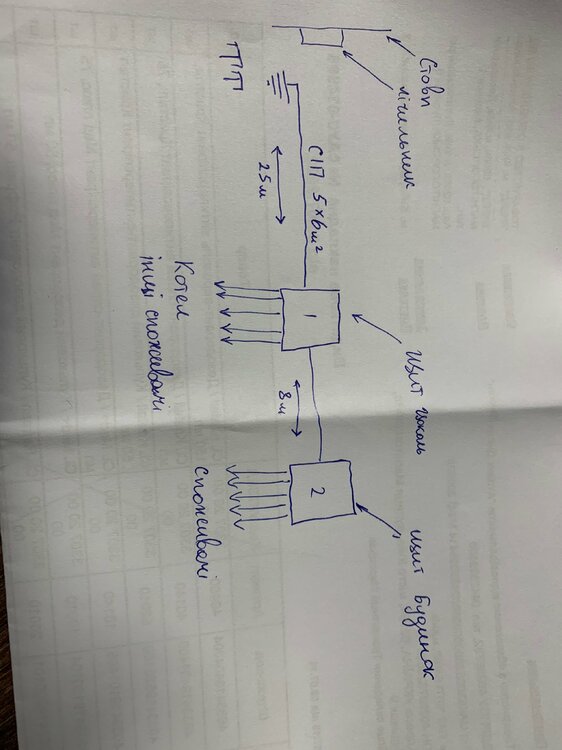 Стовп
лічильник
ТТТ
СІП 5×6м²
25м
Щит цоколь
1
Котел
інші споживачі
8м
Щит Будинок
2
споживачі